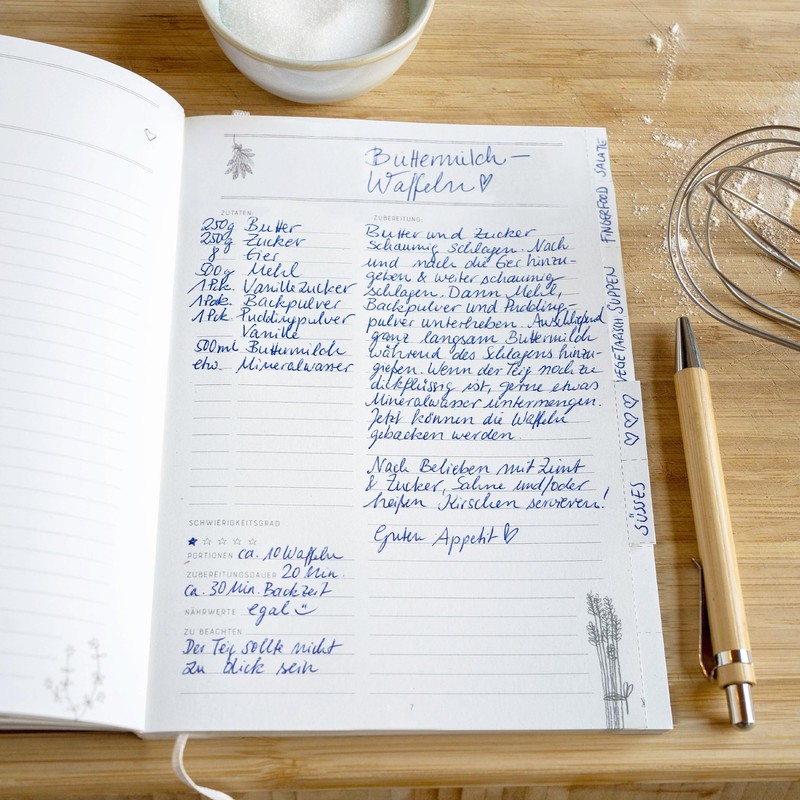 Buttermilch-
Waffeln ♡
ZUTATEN:
250g Butter
250g Zucker
8 Eier
500g Mehl
1 Pck. Vanillezucker
1 Pck. Backpulver
1 Pck. Puddingpulver
Vanille
500ml Buttermilch
etw. Mineralwasser
ZUBEREITUNG:
Butter und Zucker
schaumig schlagen. Nach
und nach die Eier hinzu-
geben & weiter schaumig
schlagen. Dann Mehl,
Backpulver und Pudding-
pulver unterheben. Anschließend
ganz langsam Buttermilch
während des Schlagens hinzu-
gießen. Wenn der Teig noch zu
dickflüssig ist, gerne etwas
Mineralwasser untermengen.
Jetzt können die Waffeln
gebacken werden.
Nach Belieben mit Zimt
& Zucker, Sahne und/oder
heißen Kirschen servieren!
Guten Appetit ♡
SCHWIERIGKEITSGRAD
★☆☆☆☆
PORTIONEN ca. 10 Waffeln
ZUBEREITUNGSDAUER 20 Min.
ca. 30 Min. Backzeit
NÄHRWERTE egal
ZU BEACHTEN
Der Teig sollte nicht
zu dick sein
7
FINGERFOOD SALATE
VEGETARISCH SUPPEN
♡♡♡
SÜSSES